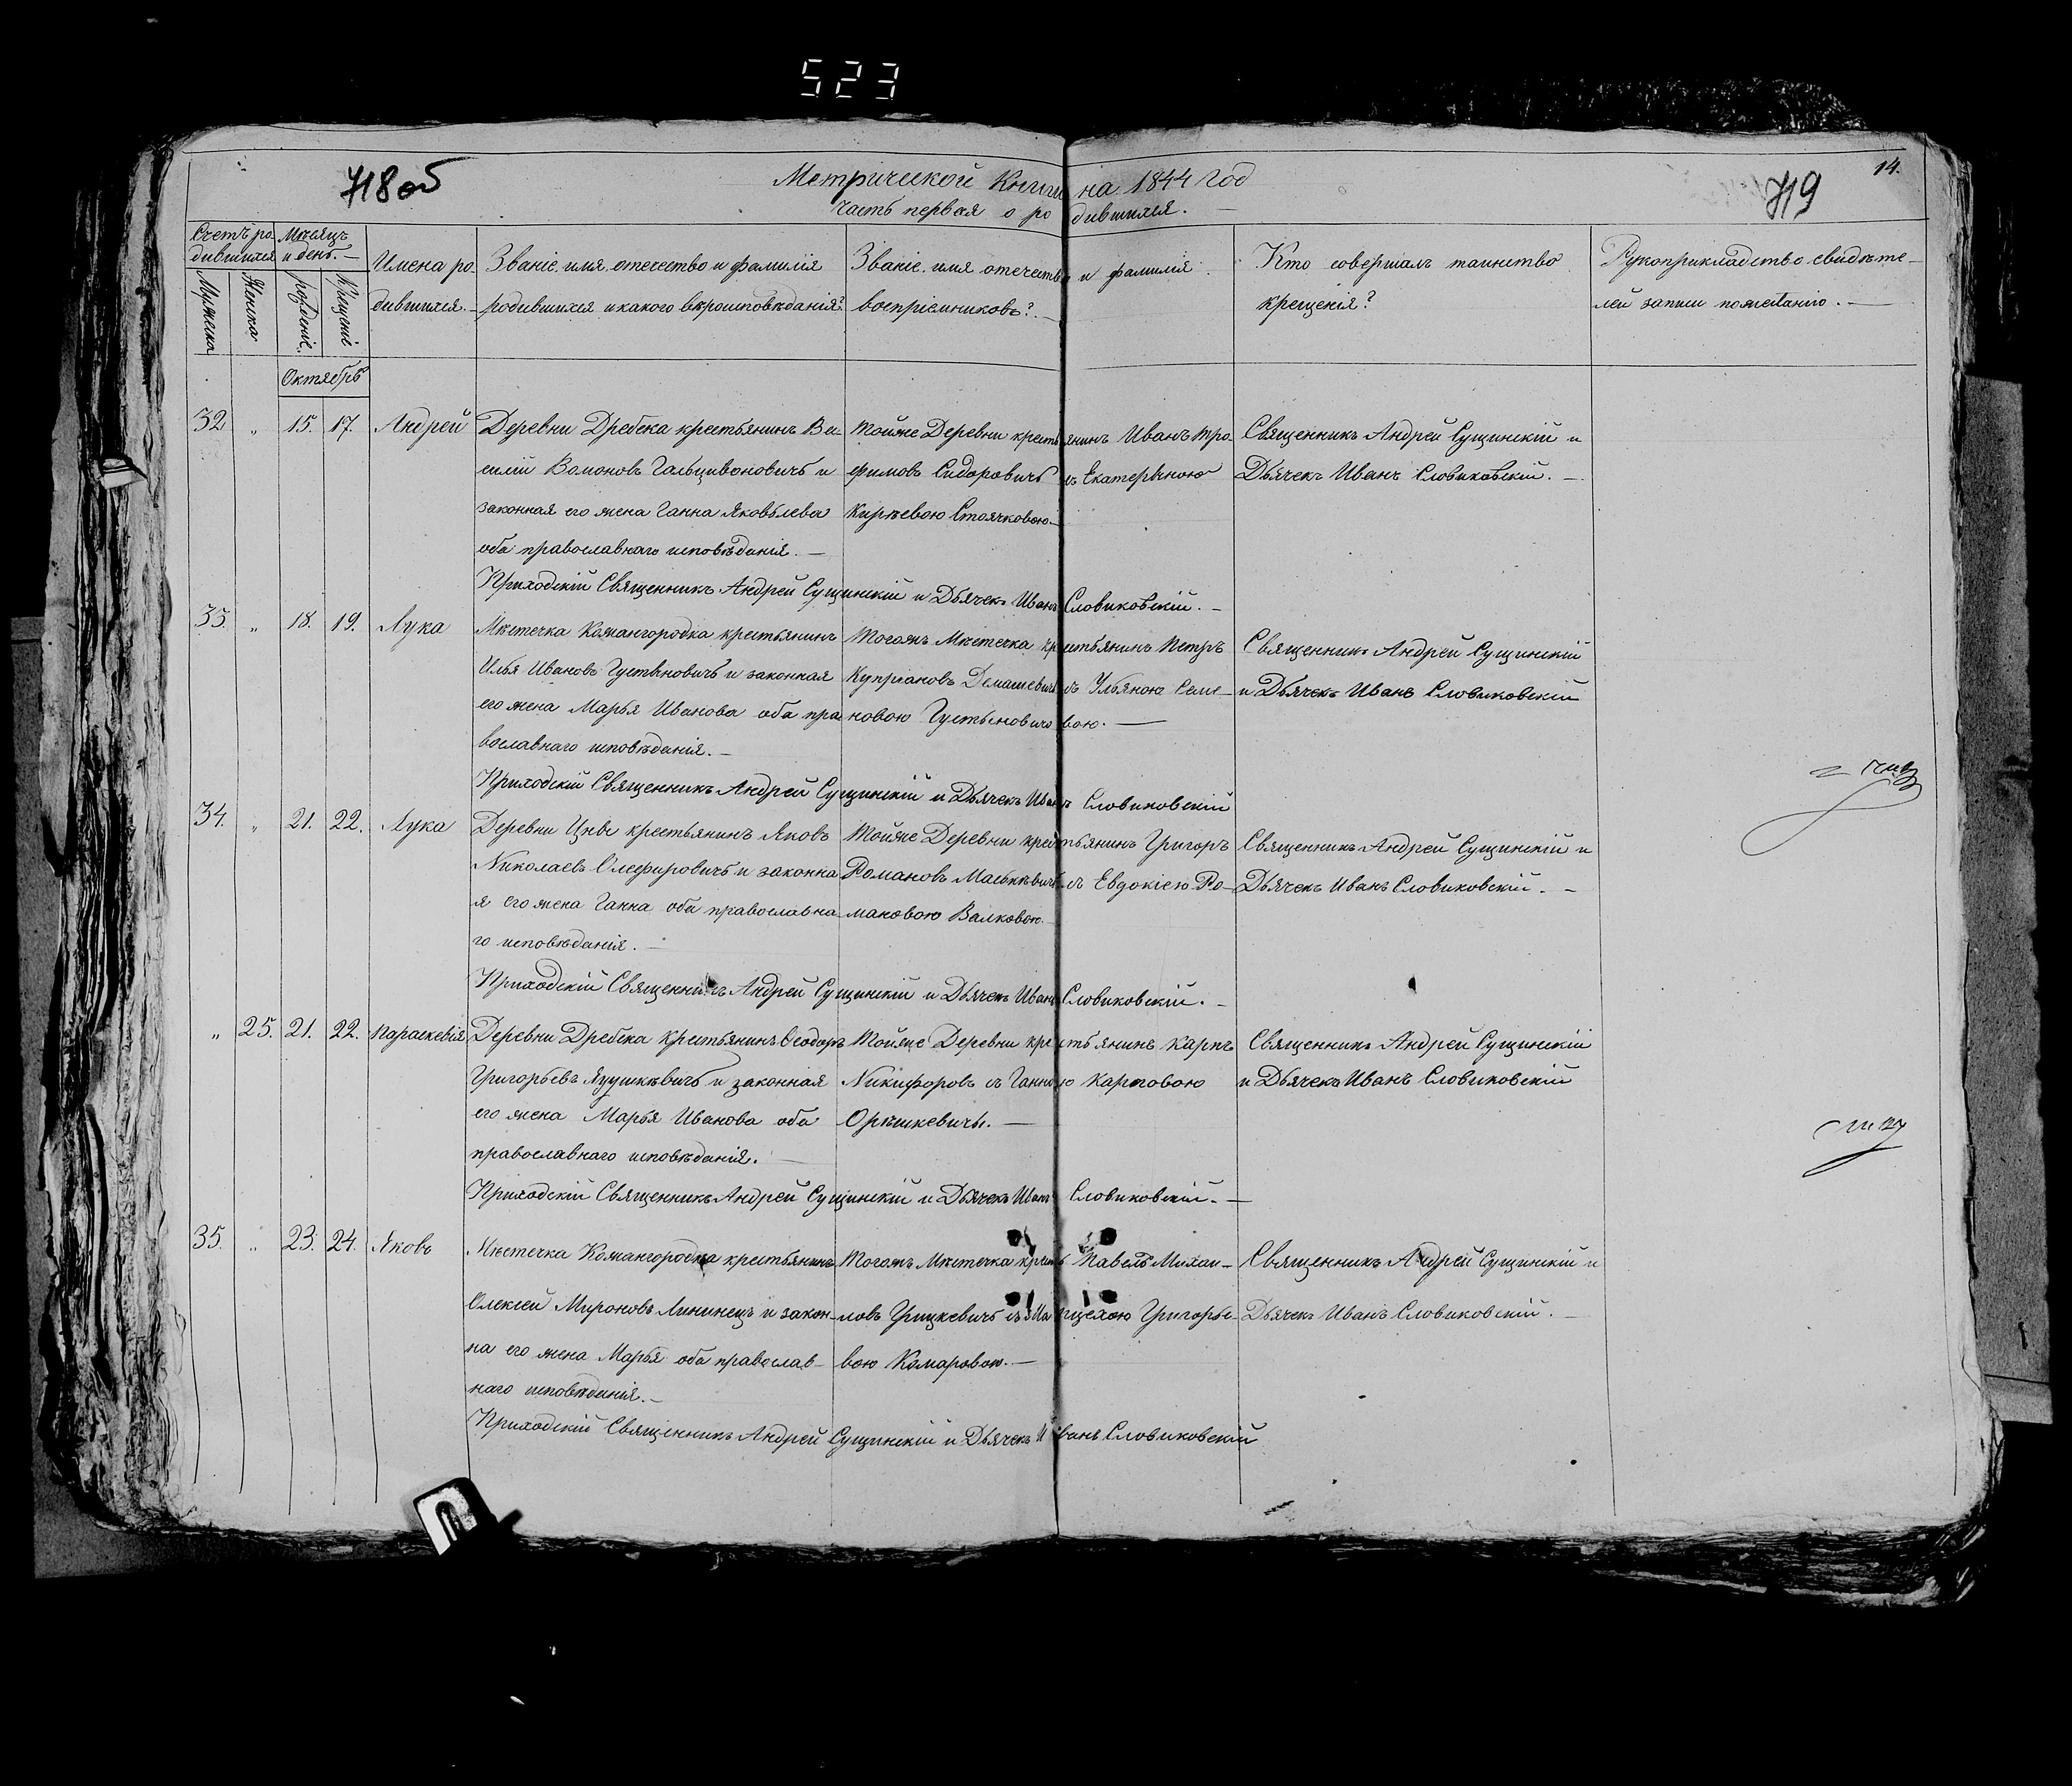 523
718об
Метрической Книги на 1844 год
719
14.
часть первая о родившихся.
Счетъ родившихся
Мѣсяцъ и день.
Имена родившихся.
Званіе имя отечество и фамилія родившихся и какого вѣроисповѣданія?
Званіе имя отечество и фамилія воспріемниковъ?
Кто совершалъ таинство крещенія?
Рукоприкладство свидѣтелей записи по желанію.
Мужеска
Женска
рожденіе.
Крещеніе
Октябрь
32 „ 15. 17. Андрей
Деревни Дребска крестьянинъ Ва-
силій и
законная его жена Ганна Яковлева
оба православнаго исповѣданія.
Тойже Деревни крестьянинъ Иванъ Тро-
фимовъ Сидоровичъ съ Екатериною
Кирѣевою Стоячковою.
Священникъ Андрей Сущинскій и
Дьячекъ Иванъ Словиковскій.
Приходскій Священникъ Андрей Сущинскій и Дьячекъ Иванъ Словиковскій.
33. „ 18. 19. Лука
Мѣстечка Кожангородка крестьянинъ
Илья Ивановъ Густыновичъ и законная
его жена Марья Иванова оба пра
вославнаго исповѣданія.
Тогожъ Мѣстечка крестьянинъ Петръ
Купріановъ Демашевичъ съ Ульяною Семе-
новою Густыновичовою.
Священникъ Андрей Сущинскій
и Дьячекъ Иванъ Словиковскій
Приходскій Священникъ Андрей Сущинскій и Дьячекъ Иванъ Словиковскій
34. „ 21. 22. Лука
Деревни Цны крестьянинъ Яковъ
Николаевъ Олефировичъ и законна
я его жена Ганна оба православна
го исповѣданія.
Тойже Деревни крестьянинъ Григоръ
Романовъ съ Евдокіею Ро-
мановою Валковою.
Священникъ Андрей Сущинскій и
Дьячекъ Иванъ Словиковскій.
Приходскій Священникъ Андрей Сущинскій и Дьячекъ Иванъ Словиковскій.
„ 25. 21. 22. Параскевія
Деревни Дребска крестьянинъ Ѳеодоръ
Григорьевъ и законная
его жена Марья Иванова оба
православнаго исповѣданія.
Тойже Деревни крестьянинъ Карпъ
Никифоровъ съ Ганною Карповою
Орѣшкевичы.
Священникъ Андрей Сущинскій
и Дьячекъ Иванъ Словиковскій
Приходскій Священникъ Андрей Сущинскій и Дьячекъ Иванъ Словиковскій.
35. „ 23. 24. Яковъ
Мѣстечка Кожангородка крестьянинъ
Олексей Мироновъ Лининецъ и закон-
на его жена Марья оба православ-
наго исповѣданія.
Тогожъ Мѣстечка крест Павелъ Михаи-
ловъ Грицкевичъ съ Григорье-
вою Комаровою.
Священникъ Андрей Сущинскій и
Дьячекъ Иванъ Словиковскій.
Приходскій Священникъ Андрей Сущинскій и Дьячекъ Иванъ Словиковскій